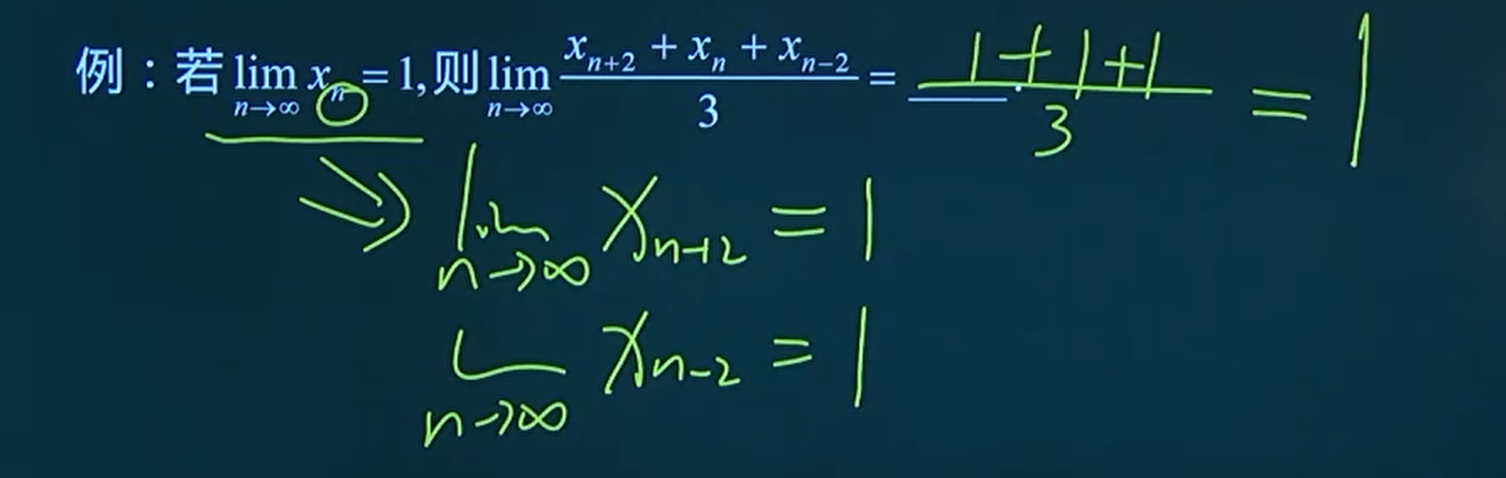 例：若 lim_{n→∞} x_n = 1, 则 lim_{n→∞} (x_{n+2} + x_n + x_{n-2})/3 = (1+1+1)/3 = 1
⇒ lim_{n→∞} x_{n+2} = 1
lim_{n→∞} x_{n-2} = 1